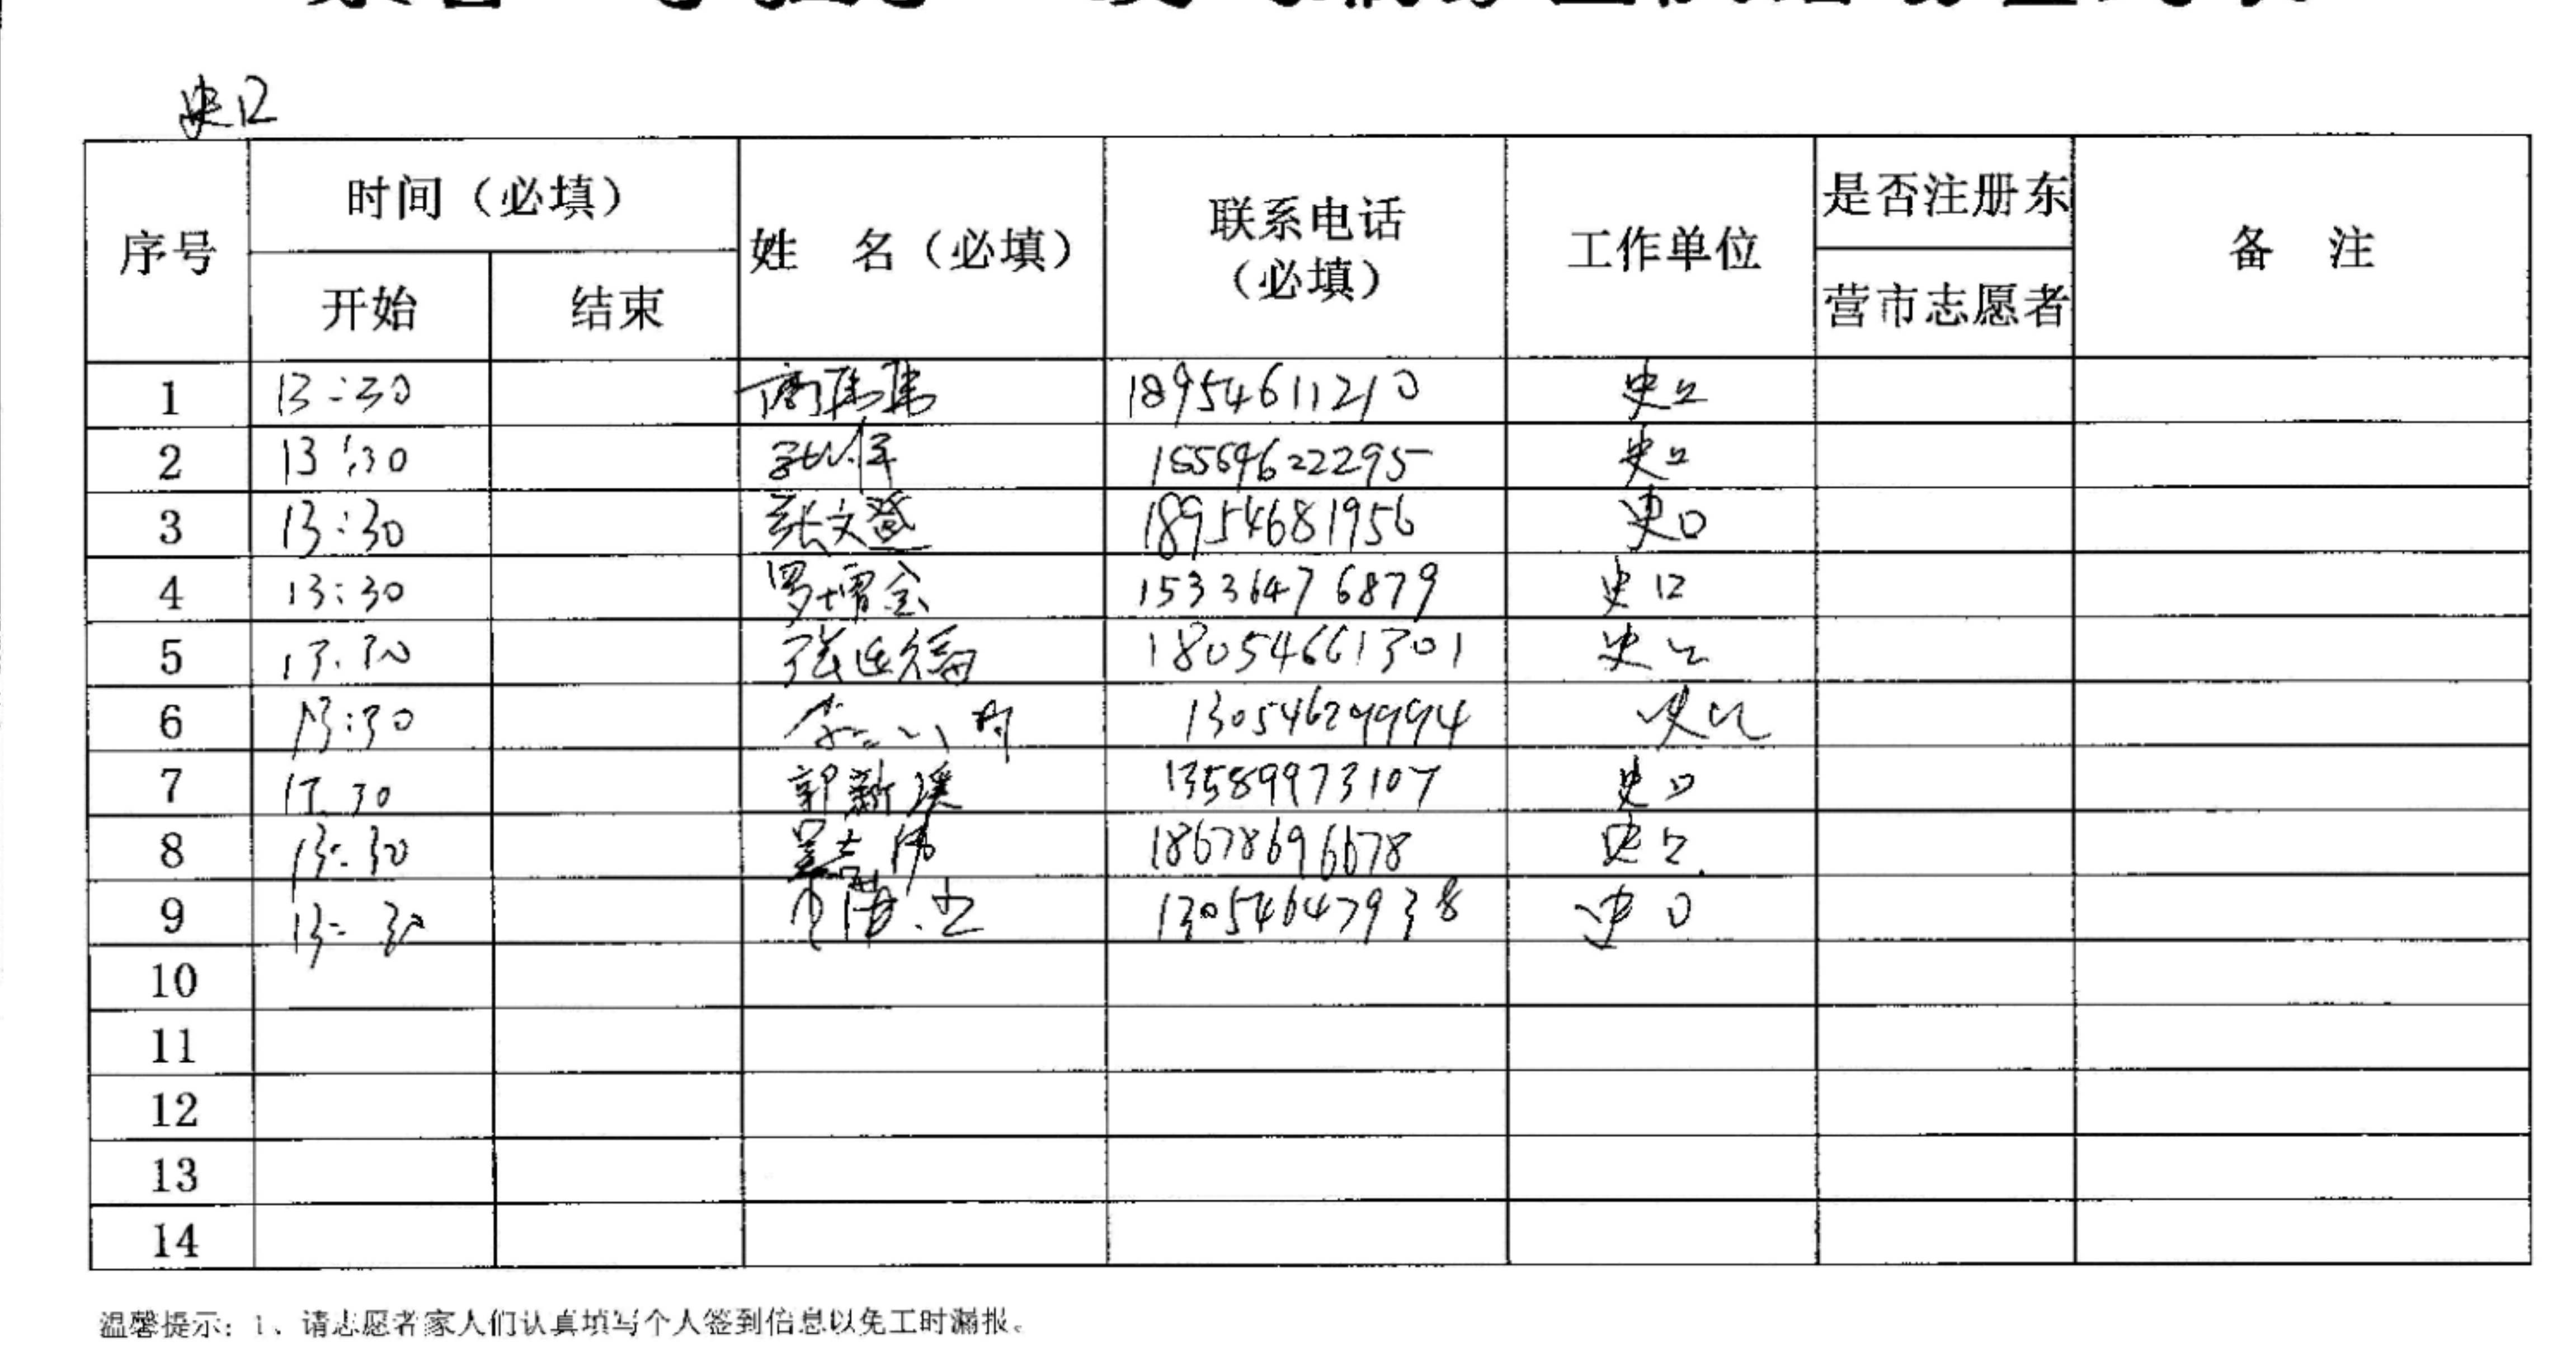 史口
序号 时间（必填） 姓 名（必填） 联系电话（必填） 工作单位 是否注册东营市志愿者 备 注
开始 结束
1 13:30 18954611210 史口
2 13:30 15554622295 史口
3 13:30 张文登 18954681956 史口
4 13:30 罗增金 15336476879 史口
5 13.30 张连福 18054661301 史口
6 13:30 13054629994 史口
7 13.30 郭新溪 13589973107 史口
8 13:30 吴志伟 18678696678 史口
9 13:30 13054647938 史口
10
11
12
13
14
温馨提示：1、请志愿者家人们认真填写个人签到信息以免工时漏报。